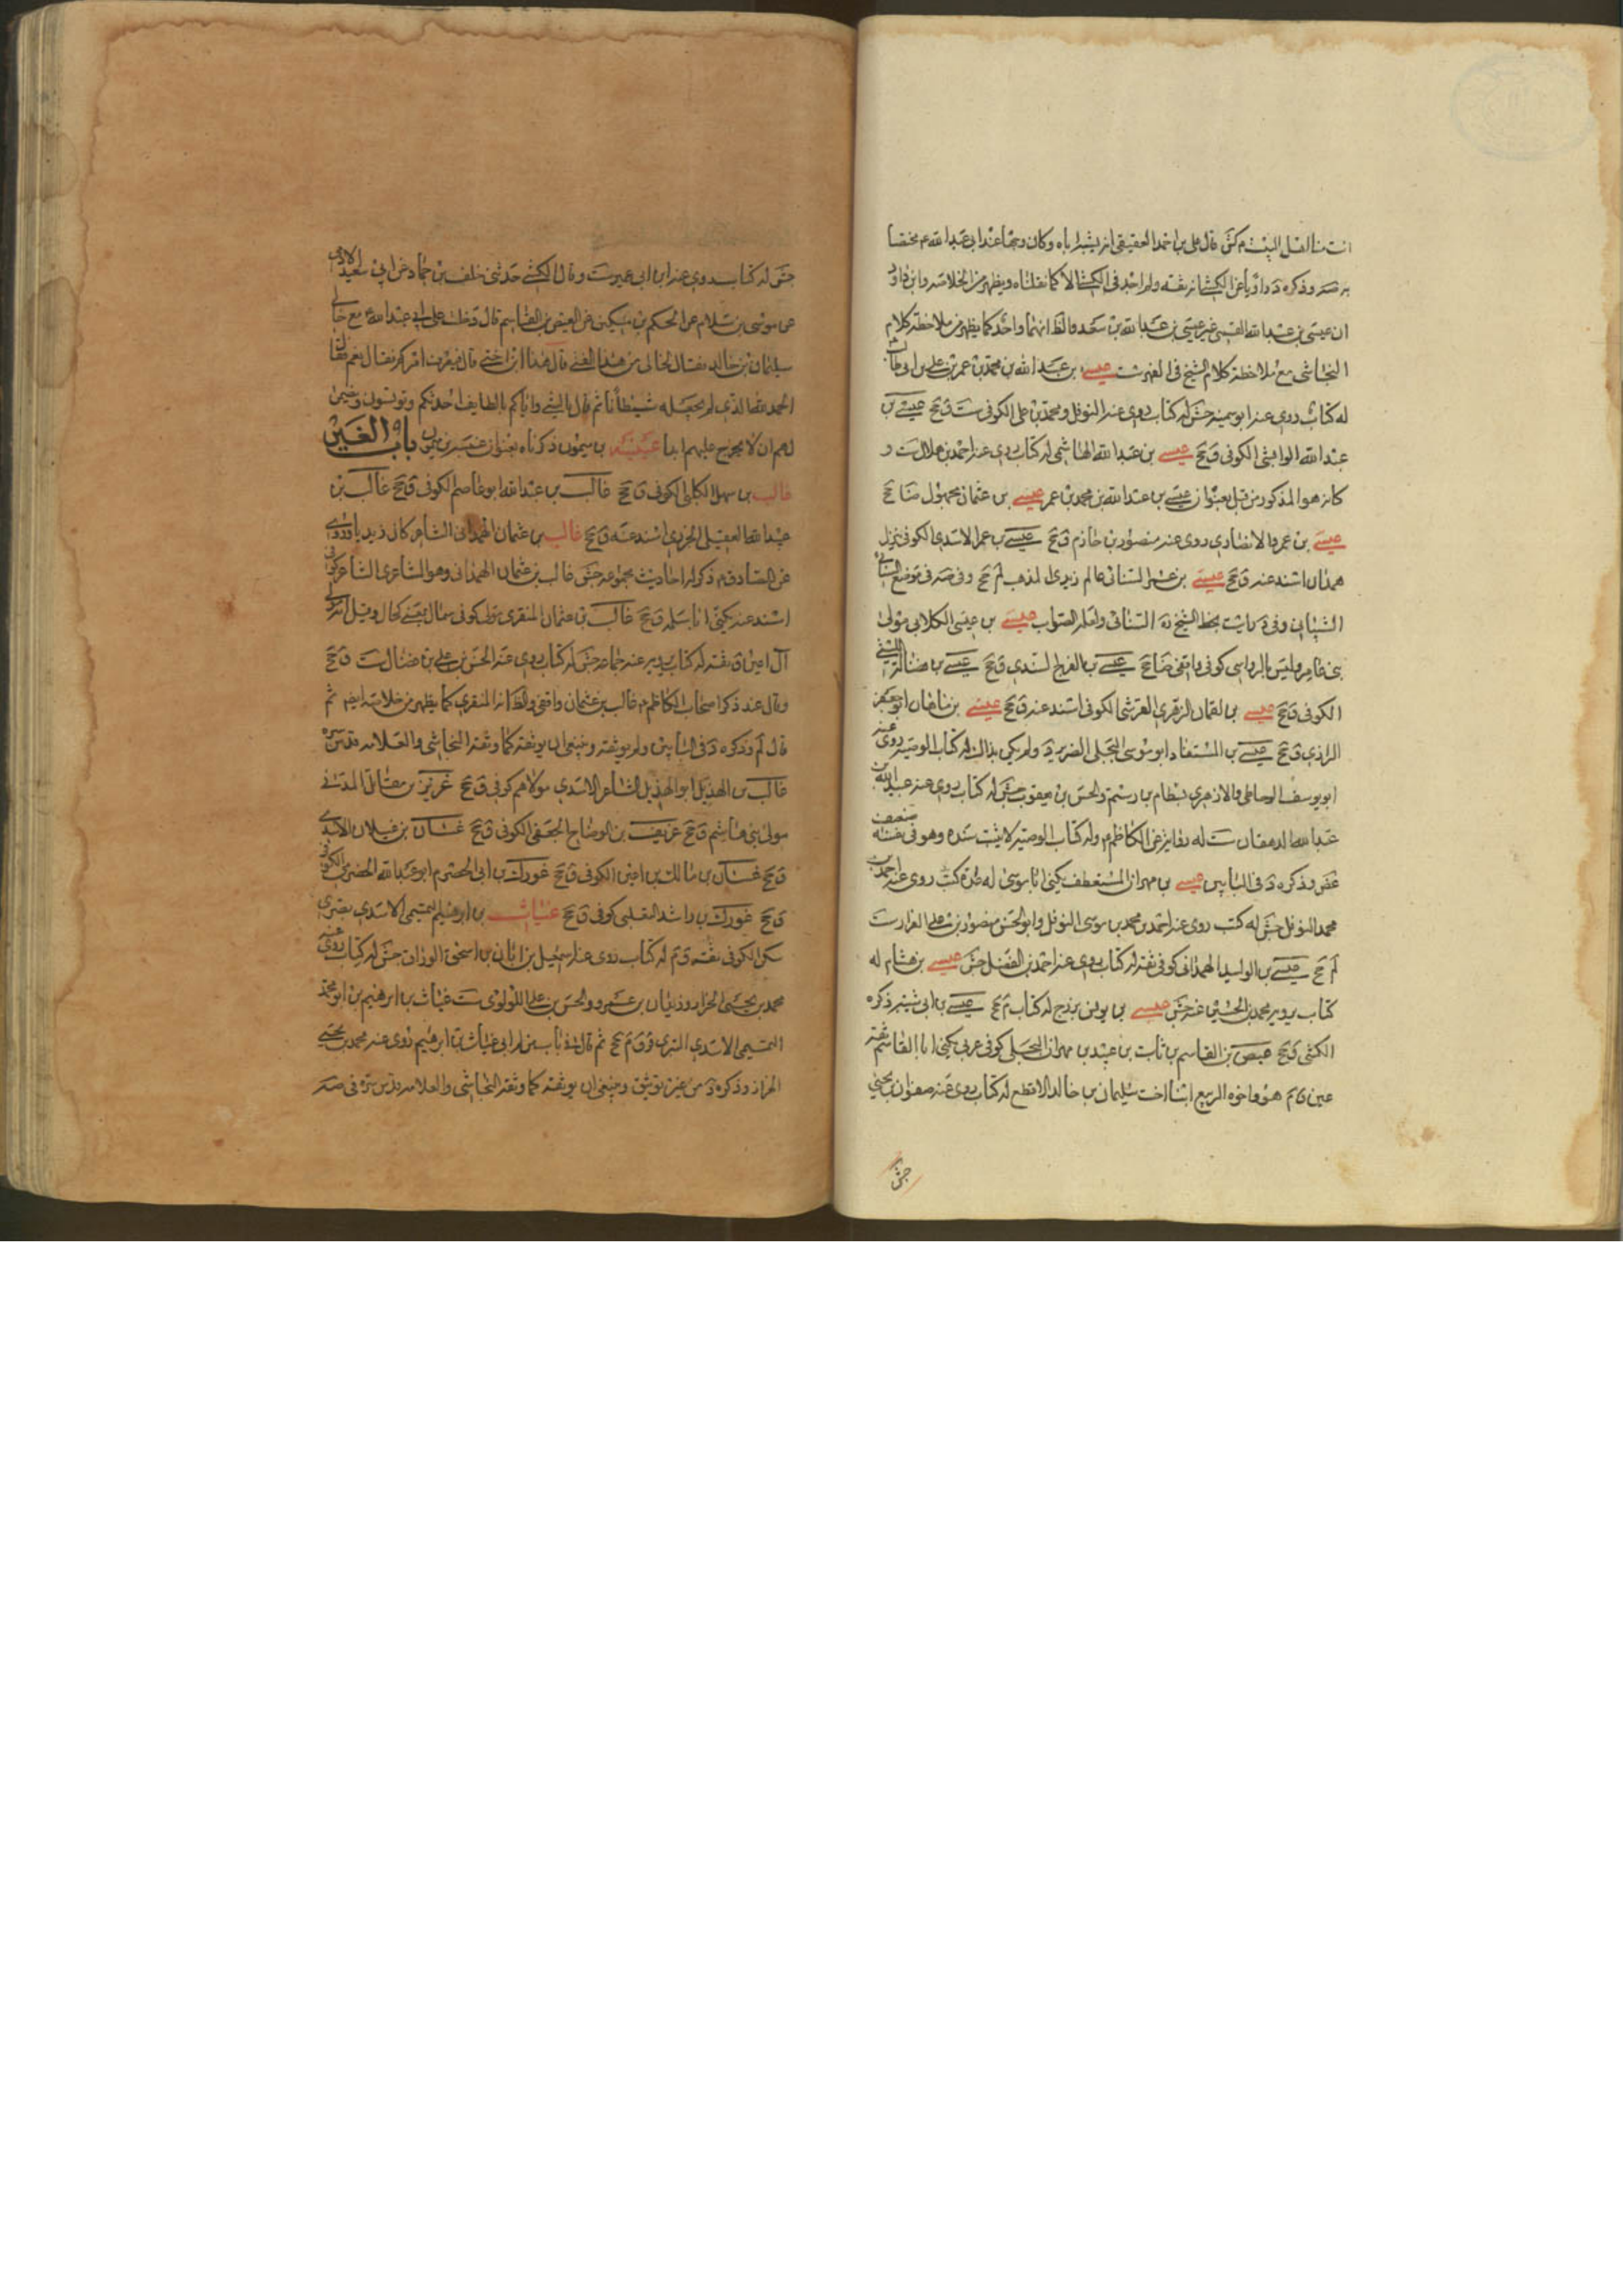 انت منا اهل البيت م كش قال علي بن احمد العقيقي انه يشبه اباه وكان وجها عند ابي عبد الله ع مختصا
به صه وذكره د راويا عن الكشي انه ثقة ولم اجد في الكشي الا كما نقلناه ويظهر من الخلاصة وابن داود
ان عيسى بن عبد الله القمي غير عيسى بن عبد الله بن سعد والظ انهما واحد كما يظهر من ملاحظة كلام
النجاشي مع ملاحظة كلام الشيخ في الفهرست عيسى بن عبد الله بن محمد بن عمر بن علي بن ابي طالب
له كتاب روى عنه ابو سمينه جش له كتاب روى عنه النوفلي ومحمد بن علي الكوفي ست ق جخ عيسى بن
عبد الله الوابشي الكوفي ق جخ عيسى بن عبد الله الهاشمي له كتاب روى عنه احمد بن هلال ست و
كانه هو المذكور من قبل بعنوان عيسى بن عبد الله بن محمد بن عمر عيسى بن عثمان مجهول ضا جخ
عيسى بن عمر الانصاري روى عنه منصور بن حازم ق جخ عيسى بن عمر الاسدي الكوفي نزيل
همدان اسند عنه ق جخ عيسى بن عمر السناني عالم زيدي المذهب لم جخ وفي صه في موضع السناني
الشيباني وفي د رايت بخط الشيخ ره السناني ولعله الصواب عيسى بن عيسى الكلابي مولى
بني عامر وليس بالرواسي كوفي واقفي ضا جخ عيسى بن الفرج السندي ق جخ عيسى بن
الكوفي ق جخ عيسى بن لقمان الزهري القرشي الكوفي اسند عنه ق جخ عيسى بن ماهان ابو جعفر
الرازي ق جخ عيسى بن المستفاد ابو موسى البجلي الضرير د ولم يكن بذاك له كتاب الوصية روى عنه
ابو يوسف الوحاظي والازهري بسطام بن رستم والحسن بن يعقوب جش له كتاب روى عنه عبيد الله بن
عبد الله الدهقان ست له رواية عن الكاظم ع وله كتاب الوصية لا يثبت سنده وهو في نفسه ضعيف
غض وذكره د في البابين عيسى بن مهران المستعطف يكنى ابا موسى له عدة كتب روى عنه احمد بن
محمد النوفلي جش له كتب روى عنه احمد بن محمد بن موسى النوفلي وابو الحسن منصور بن علي القزاز ست
لم جخ عيسى بن الوليد الهمداني كوفي ثقة له كتاب روى عنه احمد بن الفضل جش عيسى بن هشام له
كتاب يرويه محمد بن الحسين عنه جش عيسى بن يونس بزرج له كتاب م جخ عيسى بن ابي شيبه ذكره
الكشي ق جخ عيص بن القاسم بن ثابت بن عبيد بن مهران البجلي كوفي عربي يكنى ابا القاسم ثقة
عين ق م هو واخوه الربيع ابنا اخت سليمان بن خالد الاقطع له كتاب روى عنه صفوان بن يحيى
جش
جش له كتاب روى عنه ابن ابي عمير ست وقال الكشي حدثني خلف بن حماد عن ابي سعيد الادمي
عن موسى بن سلام عن الحكم بن مسكين عن العيص بن القاسم قال دخلت على ابي عبد الله ع مع خالي
سليمان بن خالد فقال لخالي من هذا الفتى قال هذا ابن اختي قال فيعرف امركم فقال نعم فقال
الحمد لله الذي لم يجعله شيطانا ثم قال يا ليتني واياكم بالطايف احدثكم وتونسوني وتضمن
لهم ان لا نخرج عليهم ابدا عيينه بن ميمون ذكرناه بعنوان عنبسه بن ميمون باب الغين
غالب بن سهل الكلبي الكوفي ق جخ غالب بن عبد الله ابو عاصم الكوفي ق جخ غالب بن
عبد الله العقيلي الجزري اسند عنه ق جخ غالب بن عثمان الهمداني الشاعر كان زيديا وروى
عن الصادق ع ذكر له احاديث مجموعه جش غالب بن عثمان الهمداني وهو الشاعري الشاعر كوفي
اسند عنه يكنى ابا سلمه ق جخ غالب بن عثمان المنقري مولى كوفي سمال بمعنى كحال وقيل انه مولى
آل اعين ق ثقة له كتاب يرويه عنه جماعه جش له كتاب روى عنه الحسن بن علي بن فضال ست ق جخ
وقال عند ذكر اصحاب الكاظم ع غالب بن عثمان واقفي والظ انه المنقري كما يظهر من خلاصة ايضا ثم
قال لم وذكره د في البابين ولم يوثقه وينبغي ان يوثقه كما وثقه النجاشي والعلامه قدس سره
غالب بن الهذيل ابو الهذيل الشاعر الاسدي مولاهم كوفي ق جخ غزيز بن مقاتل المدني
مولى بني هاشم ق جخ غريف بن الوضاح الجعفي الكوفي ق جخ غسان بن غيلان الاسدي
ق جخ غسان بن مالك بن اعين الكوفي ق جخ غورك بن ابي الحضرم ابو عبد الله الحضرمي الكوفي
ق جخ غورك بن راشد التغلبي كوفي ق جخ غياث بن ابرهيم التميمي الاسدي بصري
سكن الكوفي ثقة ق م له كتاب روى عنه اسمعيل بن ابان بن اسحق الوراق جش له كتاب روى عنه
محمد بن يحيى الخزاز وزيدان بن عمر والحسن بن علي اللؤلوي ست غياث بن ابرهيم بن ابو محمد
التميمي الاسدي البتري ق م جخ ثم قال في باب من لم ابي غياث بن ابرهيم روى عنه محمد بن يحيى
الخزاز وذكره د من غير توثيق وينبغي ان يوثقه كما وثقه النجاشي والعلامه قدس سره في صه